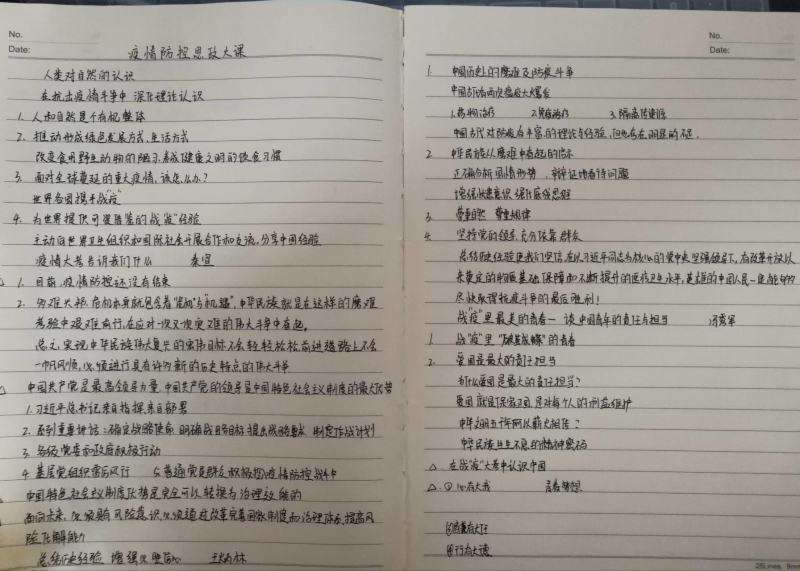 No.
Date:
疫情防控思政大课
人类对自然的认识
在抗击疫情斗争中 深化理论认识
1. 人和自然是个有机整体
2. 推动形成绿色发展方式、生活方式
改变食用野生动物的陋习、养成健康文明的饮食习惯
3. 面对全球蔓延的重大疫情,该怎么办?
世界各国携手战"疫"
4. 为世界提供可资借鉴的战"疫"经验
主动同世界卫生组织和国际社会开展合作和交流,分享中国经验
疫情大考告诉我们什么 秦宣
1. 目前,疫情防控还没有结束
2. 多难兴邦,危机本身就包含着"危机"与"机遇",中华民族就是在这样的磨难
考验中艰难前行,在应对一次又一次灾难的伟大斗争中奋起。
总之,实现中华民族伟大复兴的宏伟目标不会轻轻松松,前进道路上不会
一帆风顺,必须进行具有许多新的历史特点的伟大斗争
△ 中国共产党是最高领导力量,中国共产党的领导是中国特色社会主义制度的最大优势
1. 习近平总书记亲自指挥亲自部署
2. 系列重要讲话:确定战略使命 明确战略目标 提出战略要求 制定作战计划
3. 各级党委和政府积极行动
4. 基层党组织雷厉风行 5. 普通党员群众积极投身疫情防控战斗中
中国特色社会主义制度优势是完全可以转换为治理效能的
面向未来,必须要有风险意识,必须通过改革完善国家制度和治理体系,提高风
险化解能力
总结历史经验 增强必胜信心 王炳林
No.
Date:
1. 中国历史上的磨难及防疫斗争
中国古代有两次瘟疫大爆发
1. 药物治疗 2. 免疫治疗 3. 隔离传染源
中国古代对防疫有丰富的理论与经验,但也存在明显的不足.
2. 中华民族从磨难中奋起的启示
正确分析国情形势,辩证地看待问题
增强忧患意识 强化底线思维
3. 尊重自然 尊重规律
4. 坚持党的领导,充分依靠群众
总结历史经验使我们坚信,在以习近平同志为核心的党中央坚强领导下,有改革开放以
来奠定的物质基础保障和不断提升的医疗卫生水平,英雄的中国人民一定能够
尽快取得抗疫斗争的最后胜利!
战"疫"里最美的青春— 谈中国青年的责任与担当 冯秀军
1. 战"疫"里"破茧成蝶"的青春
2. 爱国是最大的责任担当
为什么爱国是最大的责任担当?
爱国就是保家卫国,是对每个人的利益维护
中华文明五千年何以薪火相传?
中华民族生生不息的精神密码
△ 在战"疫"大考中认识中国
△. ① 心有大我 青春梦想
②肩有大任
③行有大德
25Lines. 9mm